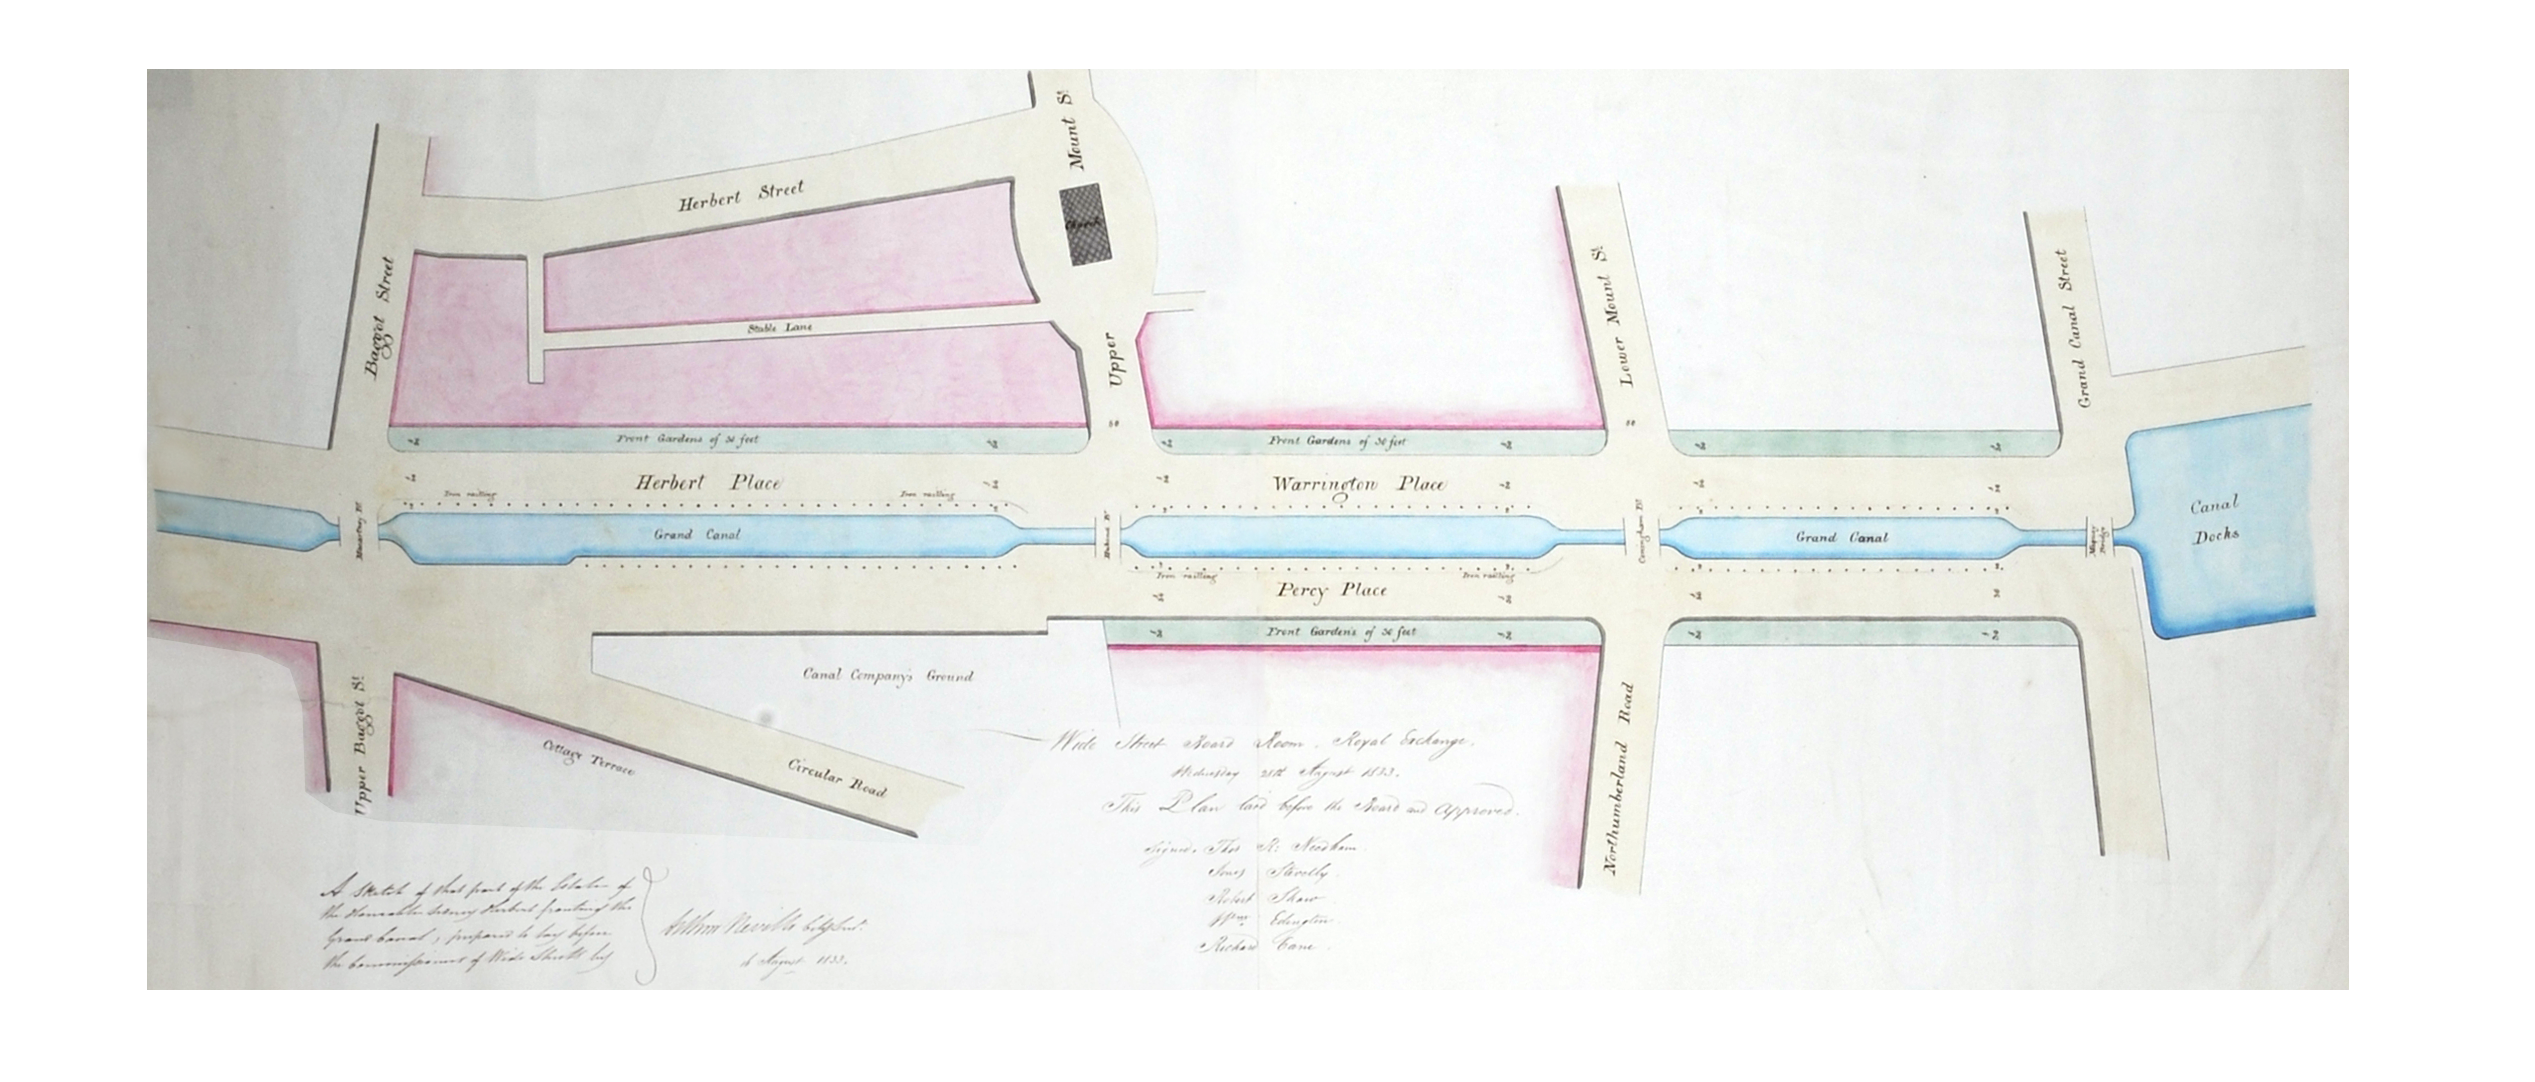 Mount St.
Herbert Street
Church
Baggot Street
Stable Lane
Upper
Lower Mount St.
Grand Canal Street
Front Gardens of 30 feet
Front Gardens of 30 feet
50
50
Herbert Place
Warrington Place
Iron railling
Iron railling
Macartney Bt.
Grand Canal
Grand Canal
Canal
Docks
Maquay
Bridge
Iron railling
Iron railling
Percy Place
Front Gardens of 30 feet
Canal Company's Ground
Upper Baggot St.
Cottage Terrace
Circular Road
Northumberland Road
Wide Street Board Room. Royal Exchange.
Wednesday 28th August 1833.
This Plan laid before the Board and Approved.
Signed. Thos. R: Needham.
Robert Shaw
Wm. Edington
Richard Cane.
A Sketch of that part of the Estate of
the Honorable Sidney Herbert fronting the
Grand Canal, prepared to lay before
the Commissioners of Wide Streets by
Arthur Neville
August 1833.